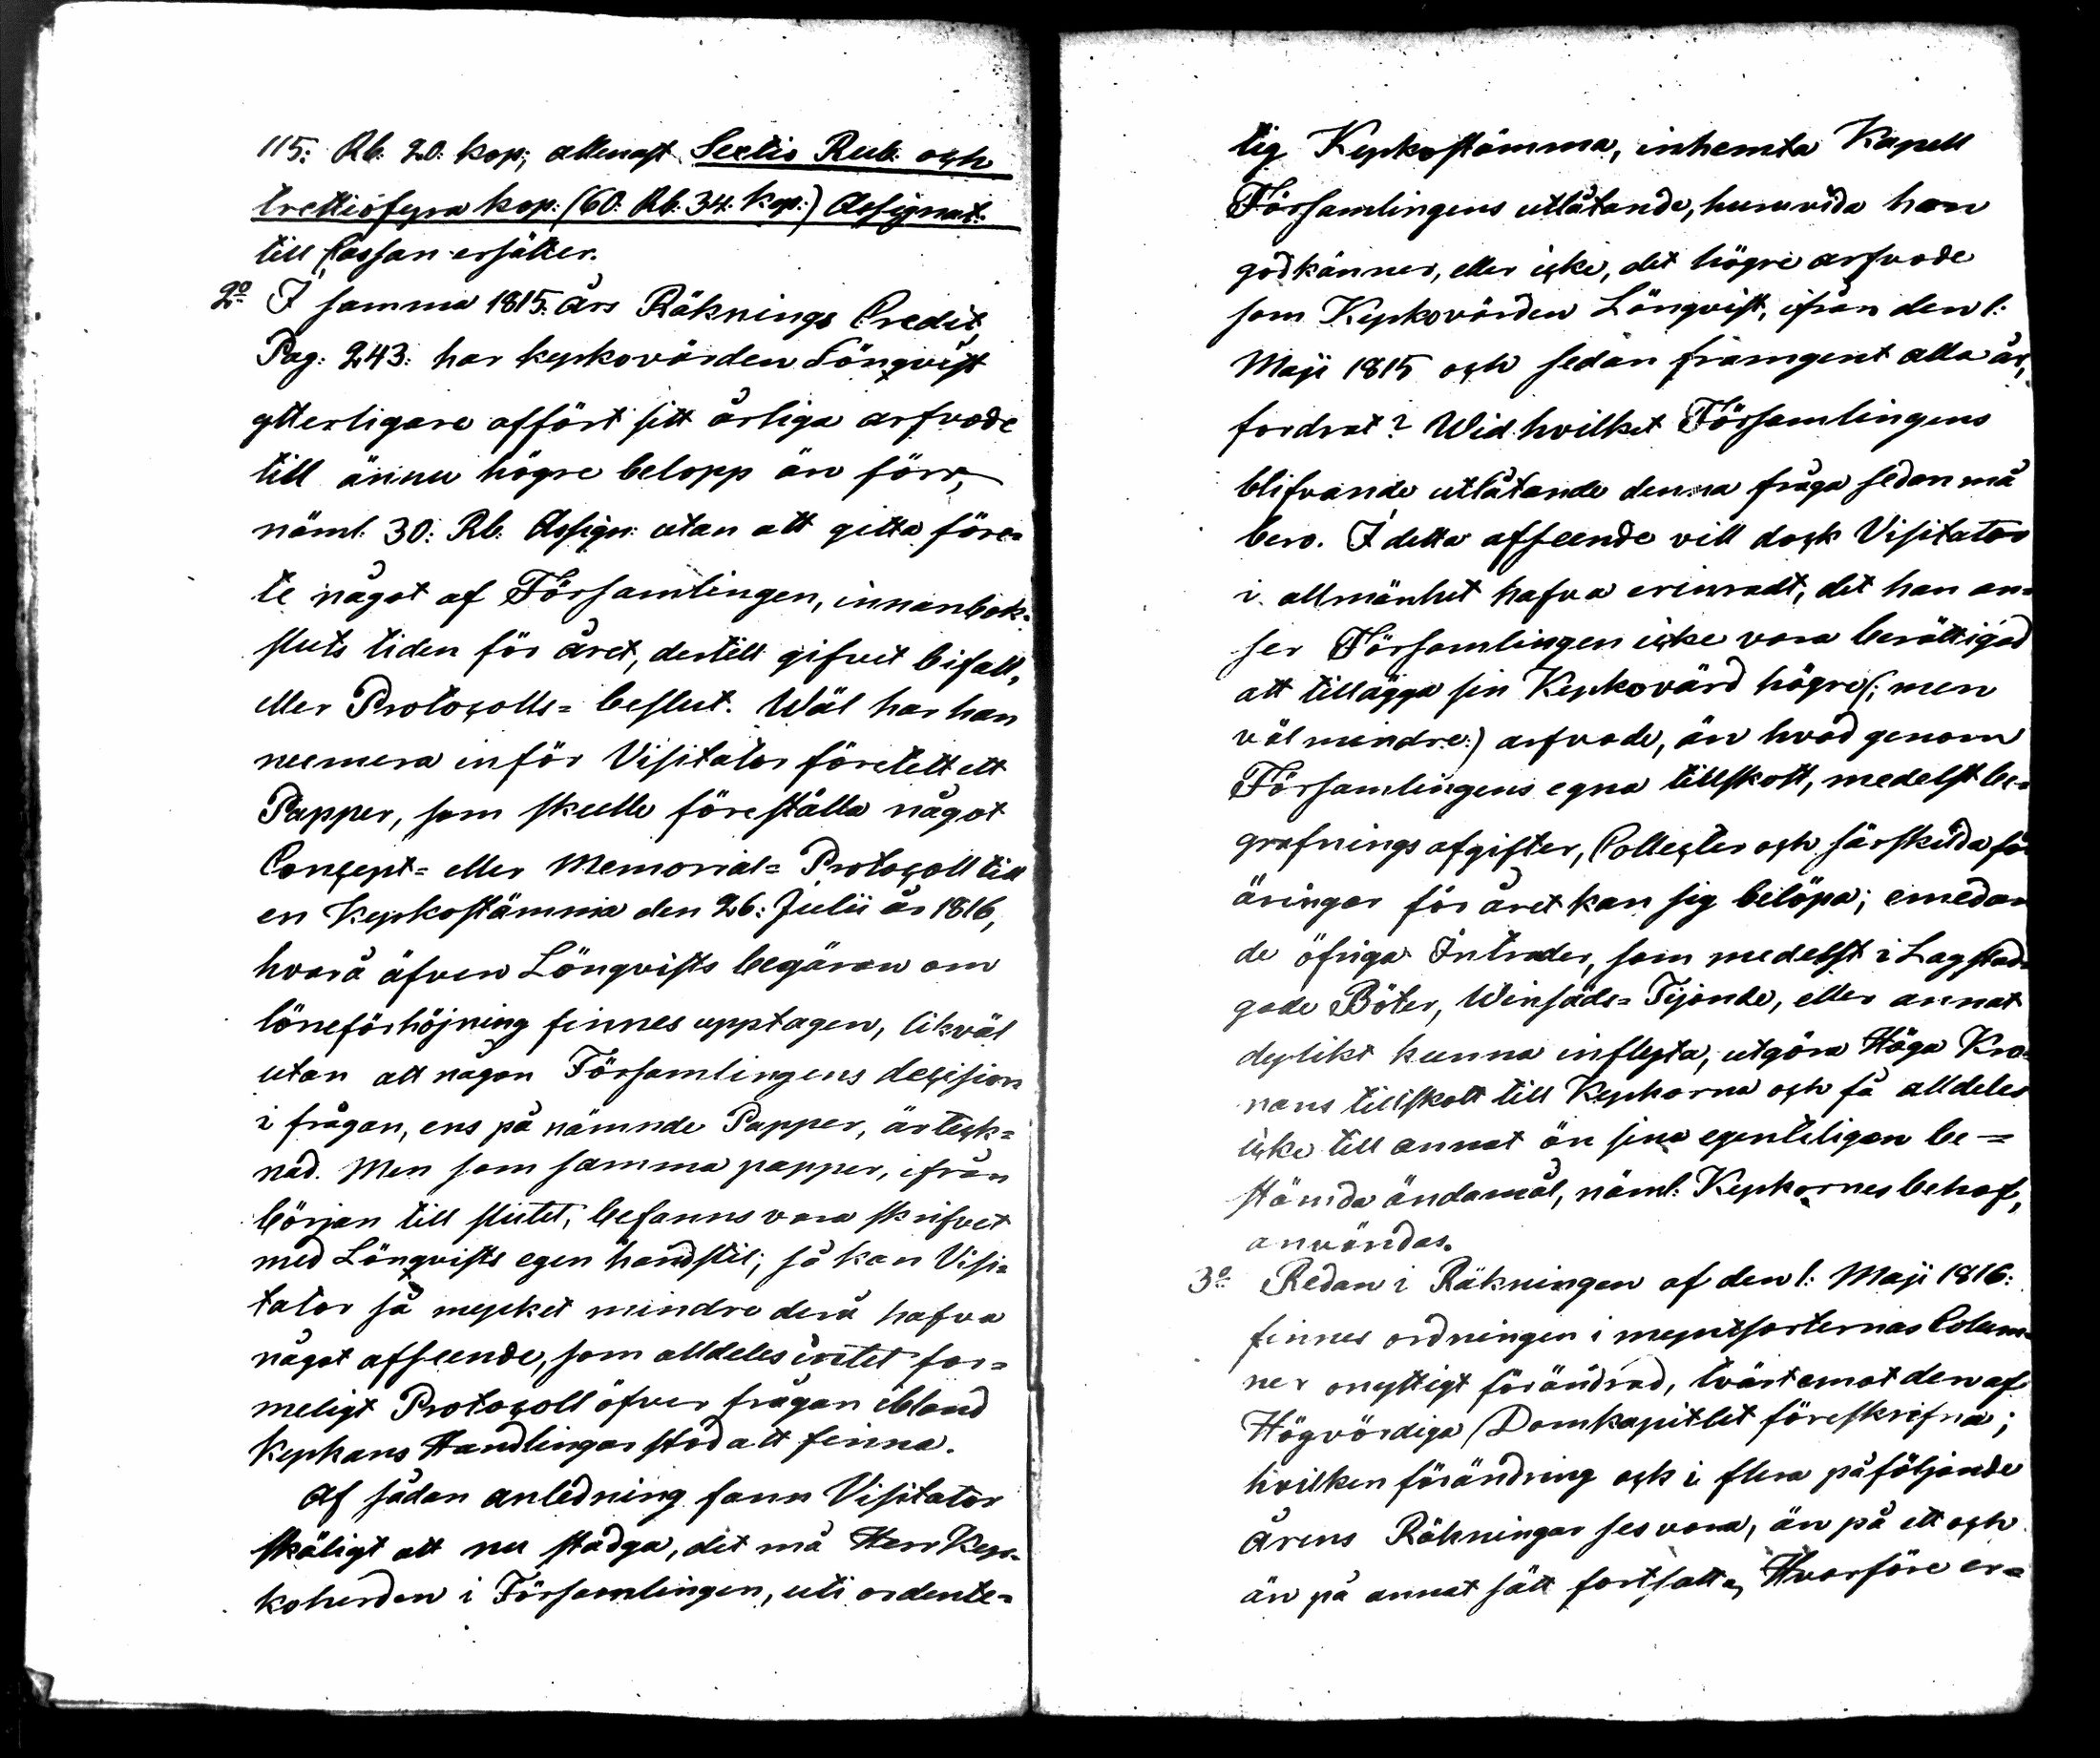 115: Rb. 20. kop; allenast Sextio Rub. och
trettiofyra kop: (60: Rb: 34: kop:) Assignat:
till Cassan ersätter.
2º I samma 1815: års Räknings Credit
Pag: 243: har kyrkovärden Lönqvist
ytterligare affört sitt årliga arfvode
till ännu högre belopp än förr,
näml: 30: Rb: Assign: utan att gitta före-
te något af Församlingen, innan bok-
sluts tiden för året, dertill gifvet bifall,
eller Protocolls= beslut. Wäl har han
numera inför Visitator företett ett
Papper, som skulle föreställa något
Concept= eller Memorial= Protocoll till
en Kyrkostämma den 26: Julii år 1816,
hvarå äfven Lönqvists begäran om
löneförhöjning finnes upptagen, likväl
utan att någon Församlingens decision
i frågan, ens på nämnde Papper, är teck=
nad. Men som samma papper, ifrån
början till slutet, befanns vara skrifvet
med Lönqvists egen handstil; så kan Visi=
tator så mycket mindre derå hafva
något afseende, som alldeles intet for=
meligt Protocoll öfver frågan ibland
Kyrkans Handlingar stod att finna.
Af sådan anledning fann Visitator
skäligt att nu stadga, det må Herr Kyr-
koherden i Församlingen, uti ordente=
lig Kyrkostämma, inhemta Kapell
Församlingens utlåtande, huruvida han
godkänner, eller icke, det högre arfvode
som Kyrkovärden Lönqvist, ifrån den 1:
Maji 1815 och sedan framgent alla år,
fordrat? Wid hvilket Församlingens
blifvande utlåtande denna fråga sedan må
bero. I detta afseende vill dock Visitator
i allmänhet hafva erinradt, det han an=
ser Församlingen icke vara berättigad
att tillägga sin Kyrkovärd högre (: men
väl mindre:) arfvode, än hvad genom
Församlingens egna tillskott, medelst be=
grafningsafgifter, Collecter och särskilda för
äringar för året kan sig belöpa; emedan
de öfriga Intrader, som medelst i Lag stad
gade Böter, Winsäds= Tijonde, eller annat
dylikt kunna inflyta, utgöra Höga Kro=
nans tillskott till Kyrkorna och få alldeles
icke till annat än sina egenteligen be=
stämda ändamål, näml: Kyrkornes behof,
användas.
3º Redan i Räkningen af den 1: Maji 1816:
finnes ordningen i myntsorternas Colum=
ner onyttigt förändrad, tvärt emot den af
Högvördiga Domkapitlet föreskrifna;
hvilken förändring ock i flera påföljande
årens Räkningar ses vara, än på ett och
än på annat sätt fortsatt. Hvarföre er=